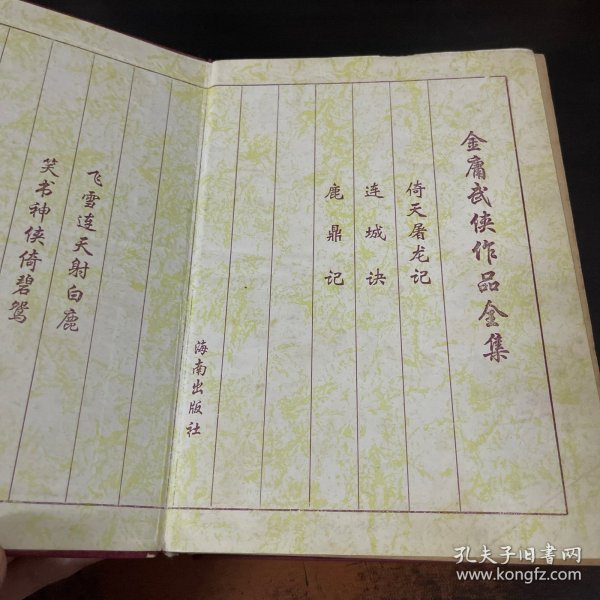 金庸武侠作品全集
倚天屠龙记
连城诀
鹿鼎记
海南出版社
飞雪连天射白鹿
笑书神侠倚碧鸳
孔夫子旧书网
www.kongfz.com